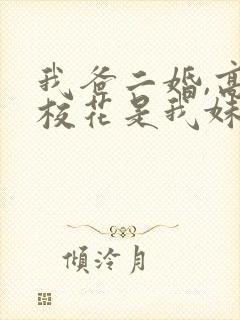 我爸二婚,高
校花是我妹
傾泠月